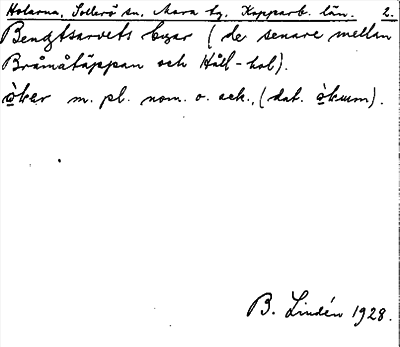 Holarna, Sollerö sn. Mora tg. Kopparb. län. 2.
Bengtsarvets byar (de senare mellan
Bråmåtäppan och Håll-hol).
òkær m. pl. nom. o. ack., (dat. òkum).
B. Lindén 1928.